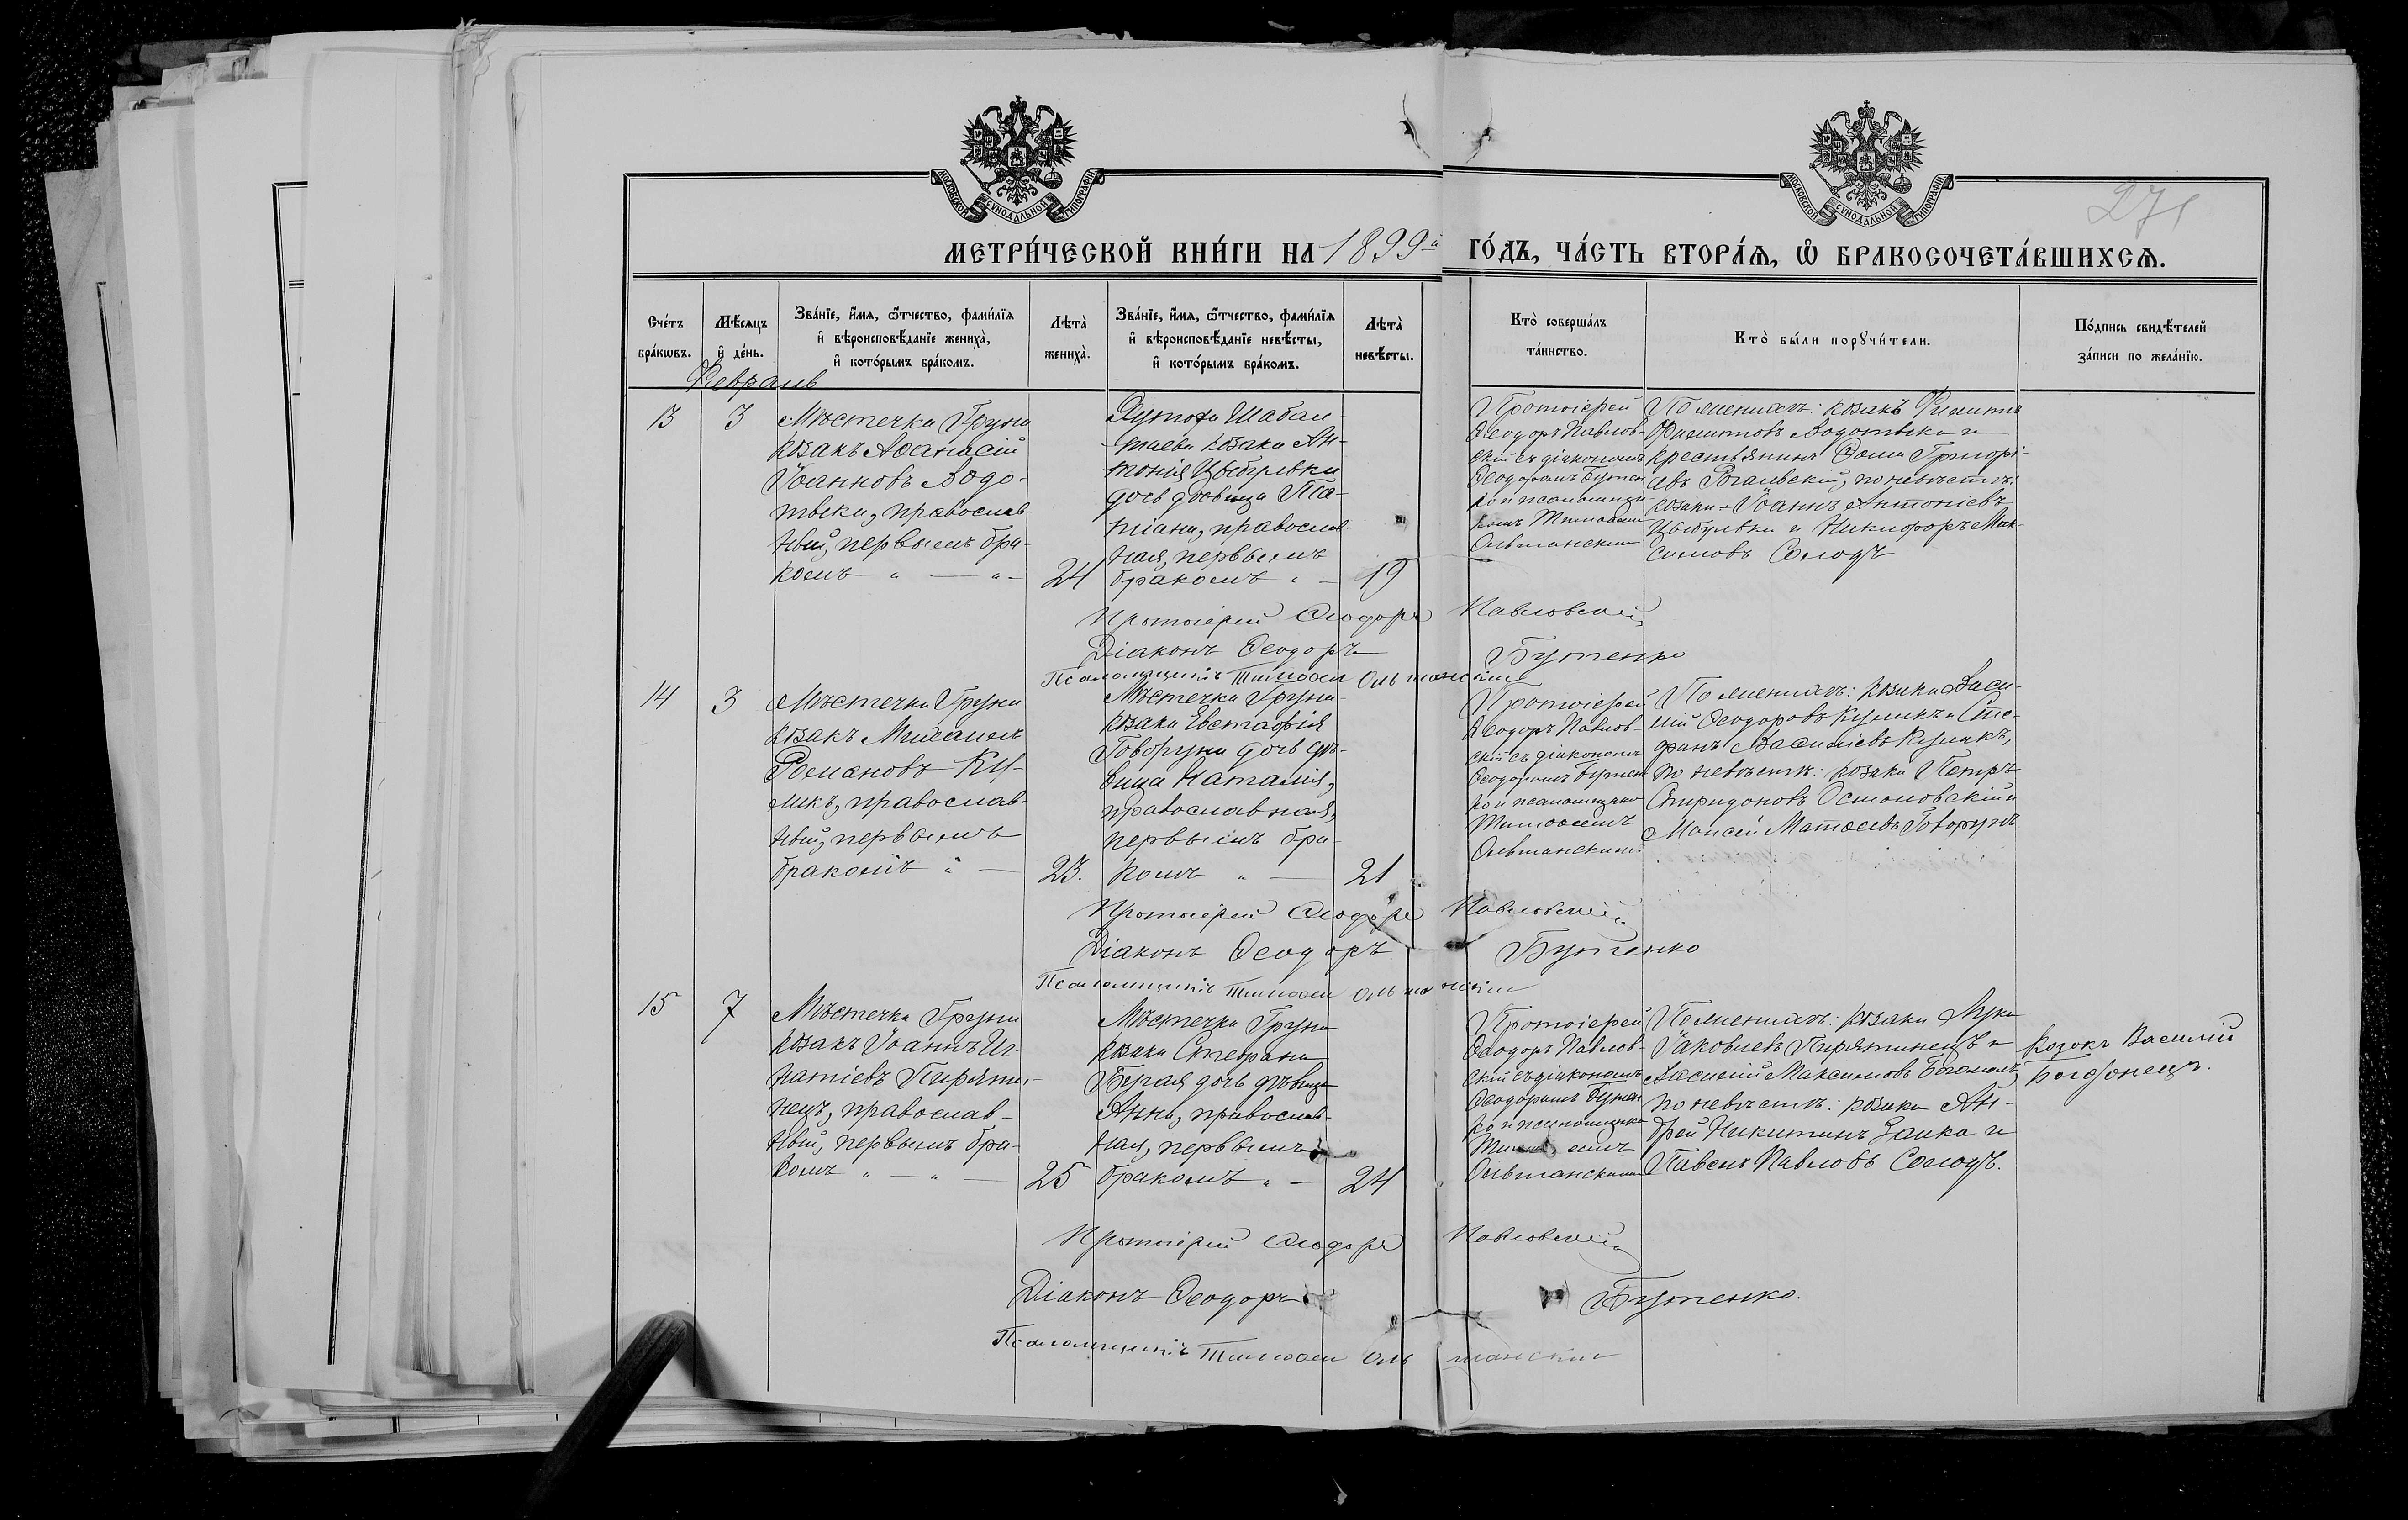 МОСКОВСКОЙ СѴНОДАЛЬНОЙ ТИПОГРАФІИ
МОСКОВСКОЙ СѴНОДАЛЬНОЙ ТИПОГРАФІИ
271
МЕТРИ́ЧЕСКОЙ КНИ́ГИ НА 1899й ГО́ДЪ, ЧА́СТЬ ВТОРА́Ѧ, Ѽ БРАКОСОЧЕТА́ВШИХСѦ.
Сче́тъ
бра́кѡвъ.
Мѣ́сѧцъ
и҆ де́нь.
Зва́нїе, и҆́мѧ, ѻ҆́тчество, фами́лїѧ
и҆ вѣроисповѣ́данїе жениха̀,
и҆ кото́рымъ бра́комъ.
Лѣта̀
жениха̀.
Зва́нїе, и҆́мѧ, ѻ҆́тчество, фами́лїѧ
и҆ вѣроисповѣ́данїе невѣ́сты,
и҆ кото́рымъ бра́комъ.
Лѣта̀
невѣ́сты.
Кто̀ соверша́лъ
та́инство.
Кто̀ бы́ли порꙋчи́тели.
По́дпись свидѣ́телей
за́писи по жела́нїю.
Февраль
13
3
Мѣстечка Груни
козакъ Аѳанасій
Іоанновъ Водо-
тыка, православ-
ный, первымъ бра-
комъ " — " -
24
Хутора Шабал-
таева козака Ан-
тонія Цыбулька
дочь дѣвица Та-
тіана, православ-
ная, первымъ
бракомъ " —
19
Протоіерей
Ѳеодоръ Павлов-
скій съ діакономъ
Ѳеодоромъ Бутен
ко и псаломщи-
комъ Тимоѳеем
Ольшанским
По женихѣ: козакъ Филиппъ
Филипповъ Водотыка и
крестьянинъ Ѳома Григорі-
евъ Рогальскій, по невѣстѣ:
козаки - Іоаннъ Антоніевъ
Цыбулька и Никифоръ Мак-
симовъ Солодъ
Протоіерей Ѳеодоръ Павловскій
Діаконъ Ѳеодоръ Бутенко
Псаломщикъ Тимоѳей Ольшанскій
14
3
Мѣстечка Груни
козакъ Михаилъ
Романовъ Ку-
ликъ, православ-
ный, первымъ
бракомъ " —
23.
Мѣстечка Груни
козака Евстафія
Говоруна дочь дѣ-
вица Наталія,
православная,
первымъ бра-
комъ " —
21
Протоіерей
Ѳеодоръ Павлов-
скій съ діакономъ
Ѳеодоромъ Бутен
ко и псаломщико
Тимоѳеемъ
Ольшанским
По женихѣ: козаки Васи-
лій Ѳеодоровъ Куликъ и Сте-
фанъ Василіевъ Куликъ,
по невѣстѣ: козаки Петръ
Спиридоновъ Осмоловскій и
Моисей Матѳеевъ Говорунъ
Протоіерей Ѳеодоръ Павловскій
Діаконъ Ѳеодоръ Бутенко
Псаломщикъ Тимоѳей Ольшанскій
15
7
Мѣстечка Груни
козакъ Іоаннъ Иг-
натіевъ Пирятин-
нецъ, православ-
ный, первымъ бра-
комъ " — " —
25
Мѣстечка Груни
козака Стефана
дочь дѣвица
Анна, православ-
ная, первымъ
бракомъ " —
24
Протоіерей
Ѳеодоръ Павлов-
скій съ діакономъ
Ѳеодоромъ Бутен
ко и псаломщико
Ольшанским
По женихѣ: козаки Лука
Іаковлевъ Пирятинецъ и
Василій Максимовъ
по невѣстѣ: козаки Ан-
дрей Никитинъ Заика и
Павелъ Павловъ Солодъ.
Козакъ Василій
Протоіерей Ѳеодоръ Павловскій
Діаконъ Ѳеодоръ Бутенко.
Псаломщикъ Тимоѳей Ольшанскій